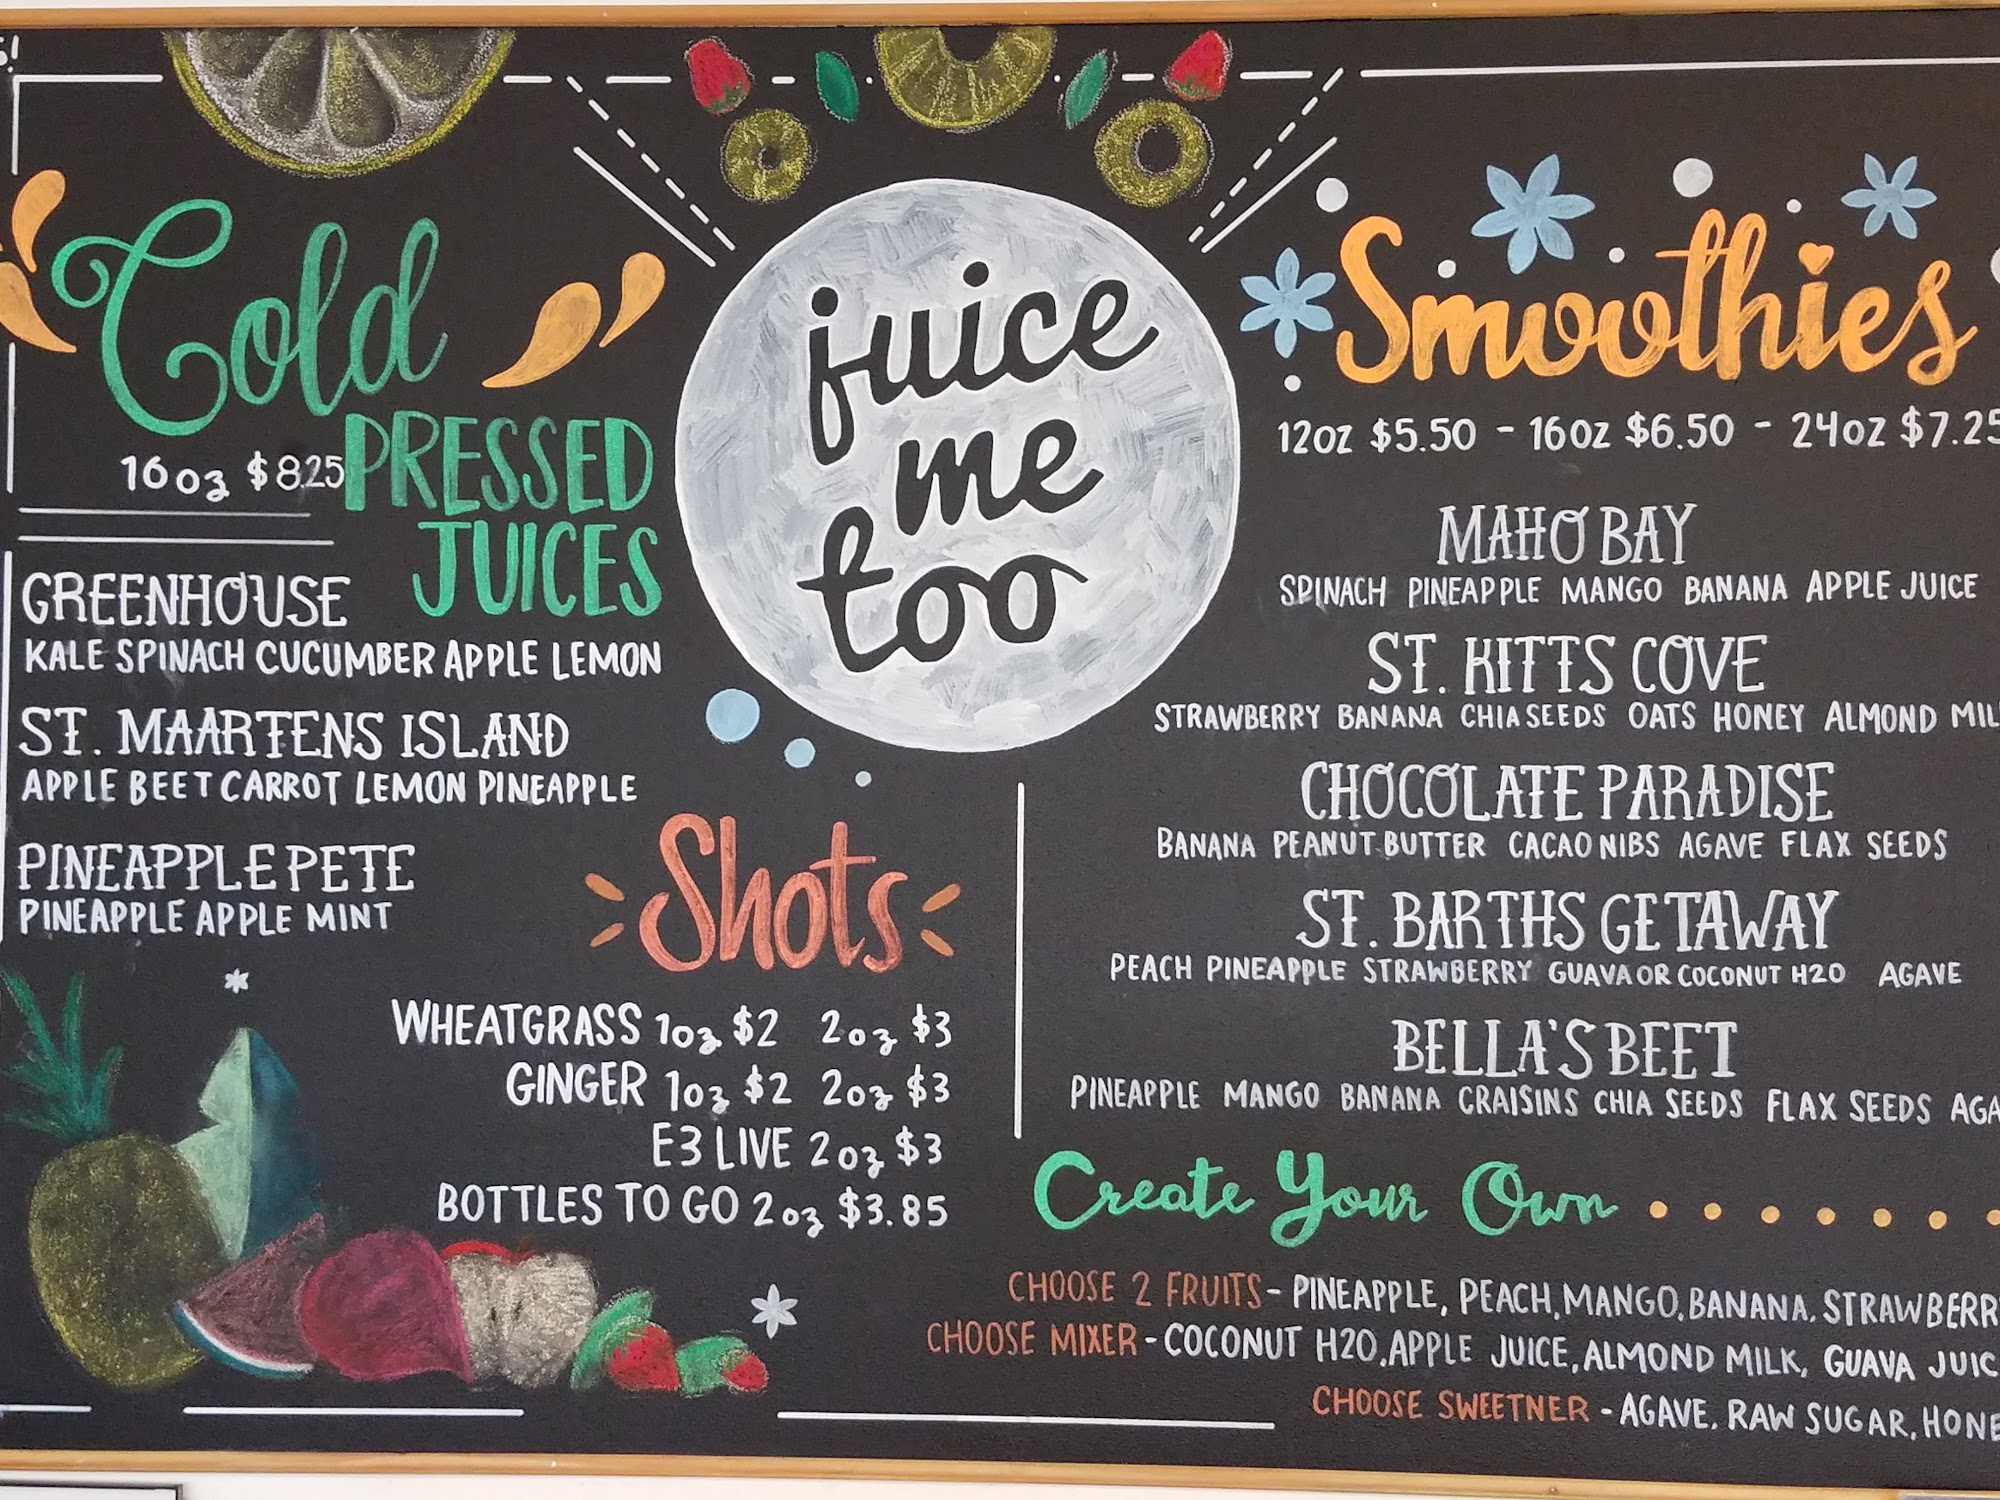 Cold
PRESSED
16oz $8.25
JUICES
GREENHOUSE
KALE SPINACH CUCUMBER APPLE LEMON
ST. MAARTENS ISLAND
APPLE BEET CARROT LEMON PINEAPPLE
PINEAPPLE PETE
PINEAPPLE APPLE MINT
juice
me
too
Shots
WHEATGRASS 1oz $2 2oz $3
GINGER 1oz $2 2oz $3
E3 LIVE 2oz $3
BOTTLES TO GO 2oz $3.85
Smoothies
12oz $5.50 - 16oz $6.50 - 24oz $7.25
MAHO BAY
SPINACH PINEAPPLE MANGO BANANA APPLE JUICE
ST. KITTS COVE
STRAWBERRY BANANA CHIA SEEDS OATS HONEY ALMOND MIL
CHOCOLATE PARADISE
BANANA PEANUT BUTTER CACAO NIBS AGAVE FLAX SEEDS
ST. BARTHS GETAWAY
PEACH PINEAPPLE STRAWBERRY GUAVA OR COCONUT H2O AGAVE
BELLA'S BEET
PINEAPPLE MANGO BANANA CRAISINS CHIA SEEDS FLAX SEEDS AGA
Create Your Own
CHOOSE 2 FRUITS - PINEAPPLE, PEACH, MANGO, BANANA, STRAWBERR
CHOOSE MIXER - COCONUT H2O, APPLE JUICE, ALMOND MILK, GUAVA JUIC
CHOOSE SWEETNER - AGAVE, RAW SUGAR, HONE